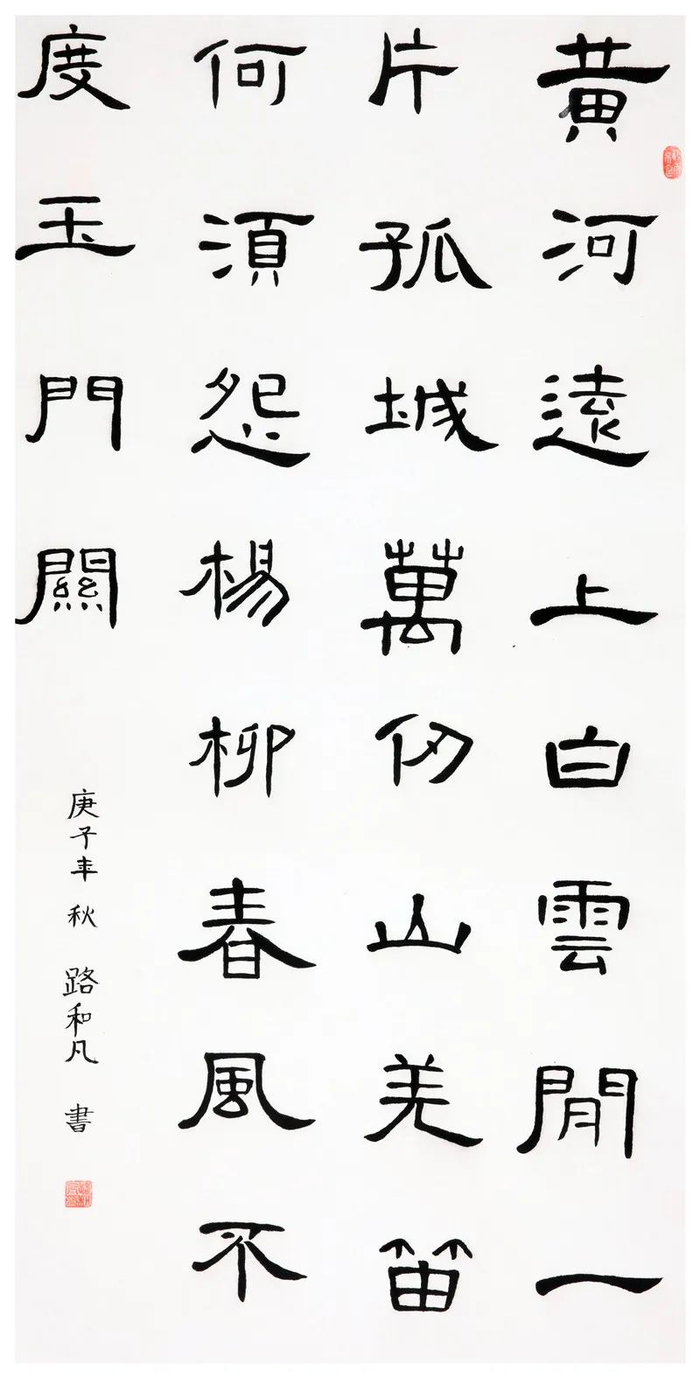 黄河遠上白雲閒一
片孤城萬仞山羌笛
何須怨楊柳春風不
度玉門關
庚子年秋 路和凡 書